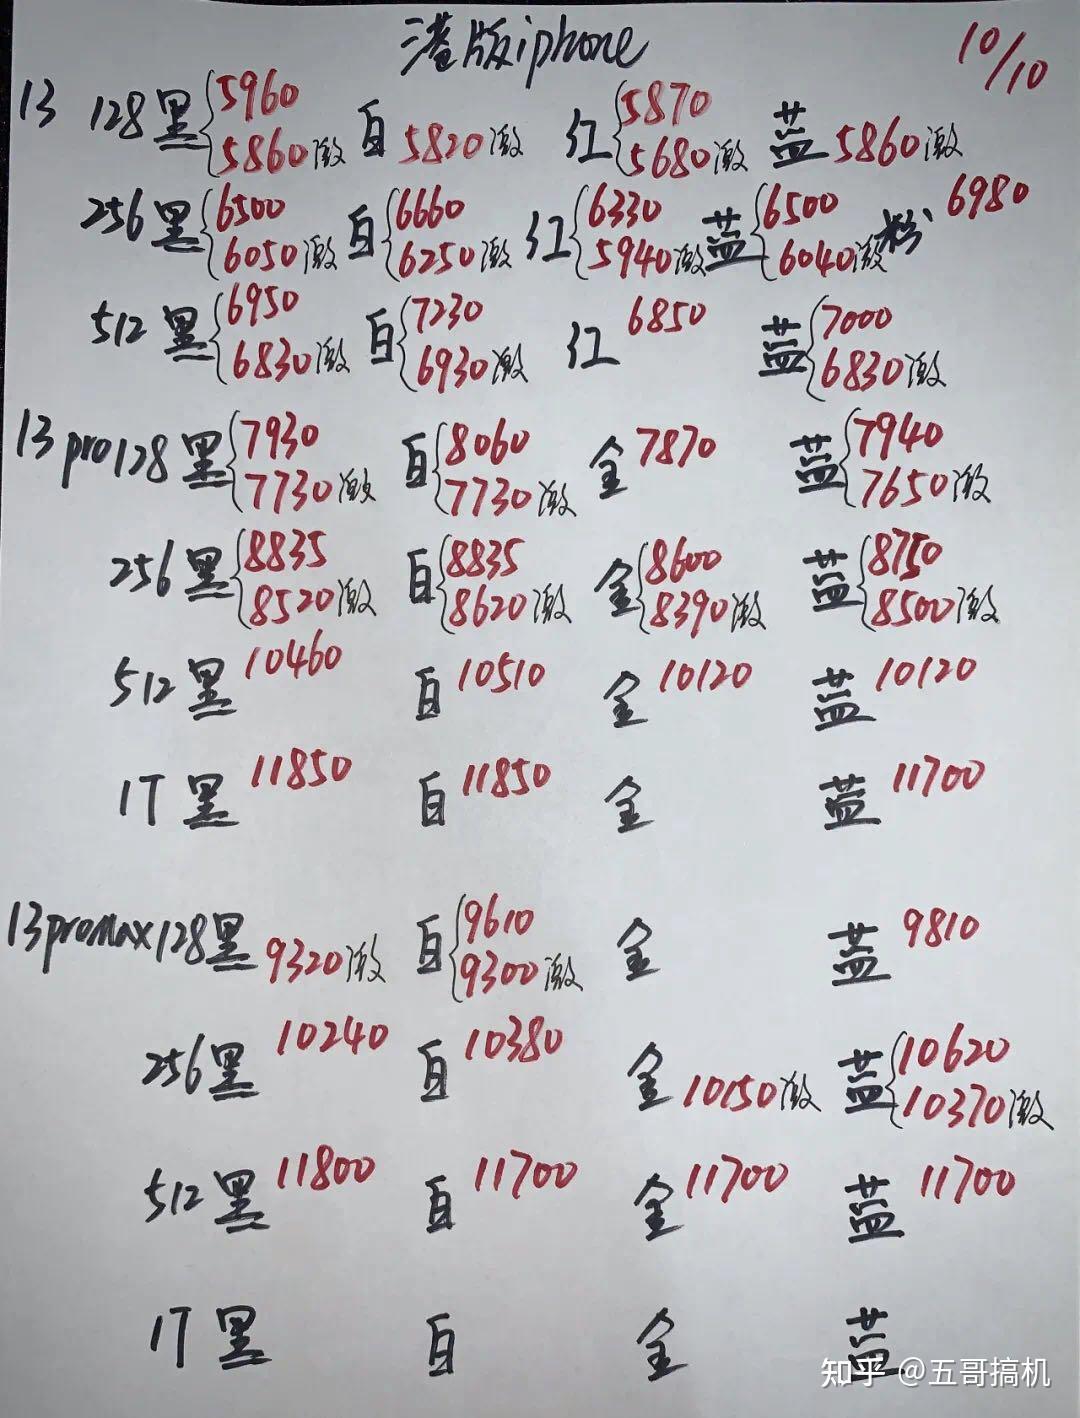 港版iphone 10/10
13 128黑{5960 5860激 白 5820激 红{5870 5680激 蓝 5860激
256黑{6500 6050激 白{6660 6250激 红{6330 5940激 蓝{6500 6040激 粉 6980
512黑{6950 6830激 白{7230 6930激 红 6850 蓝{7000 6830激
13pro128黑{7930 7730激 白{8060 7730激 金 7870 蓝{7940 7650激
256黑{8835 8520激 白{8835 8620激 金{8600 8390激 蓝{8750 8500激
512黑 10460 白 10510 金 10120 蓝 10120
1T黑 11850 白 11850 金 蓝 11700
13promax128黑 9320激 白{9610 9300激 金 蓝 9810
256黑 10240 白 10380 金 10150激 蓝{10620 10370激
512黑 11800 白 11700 金 11700 蓝 11700
1T黑 白 金 蓝
知乎 @五哥搞机